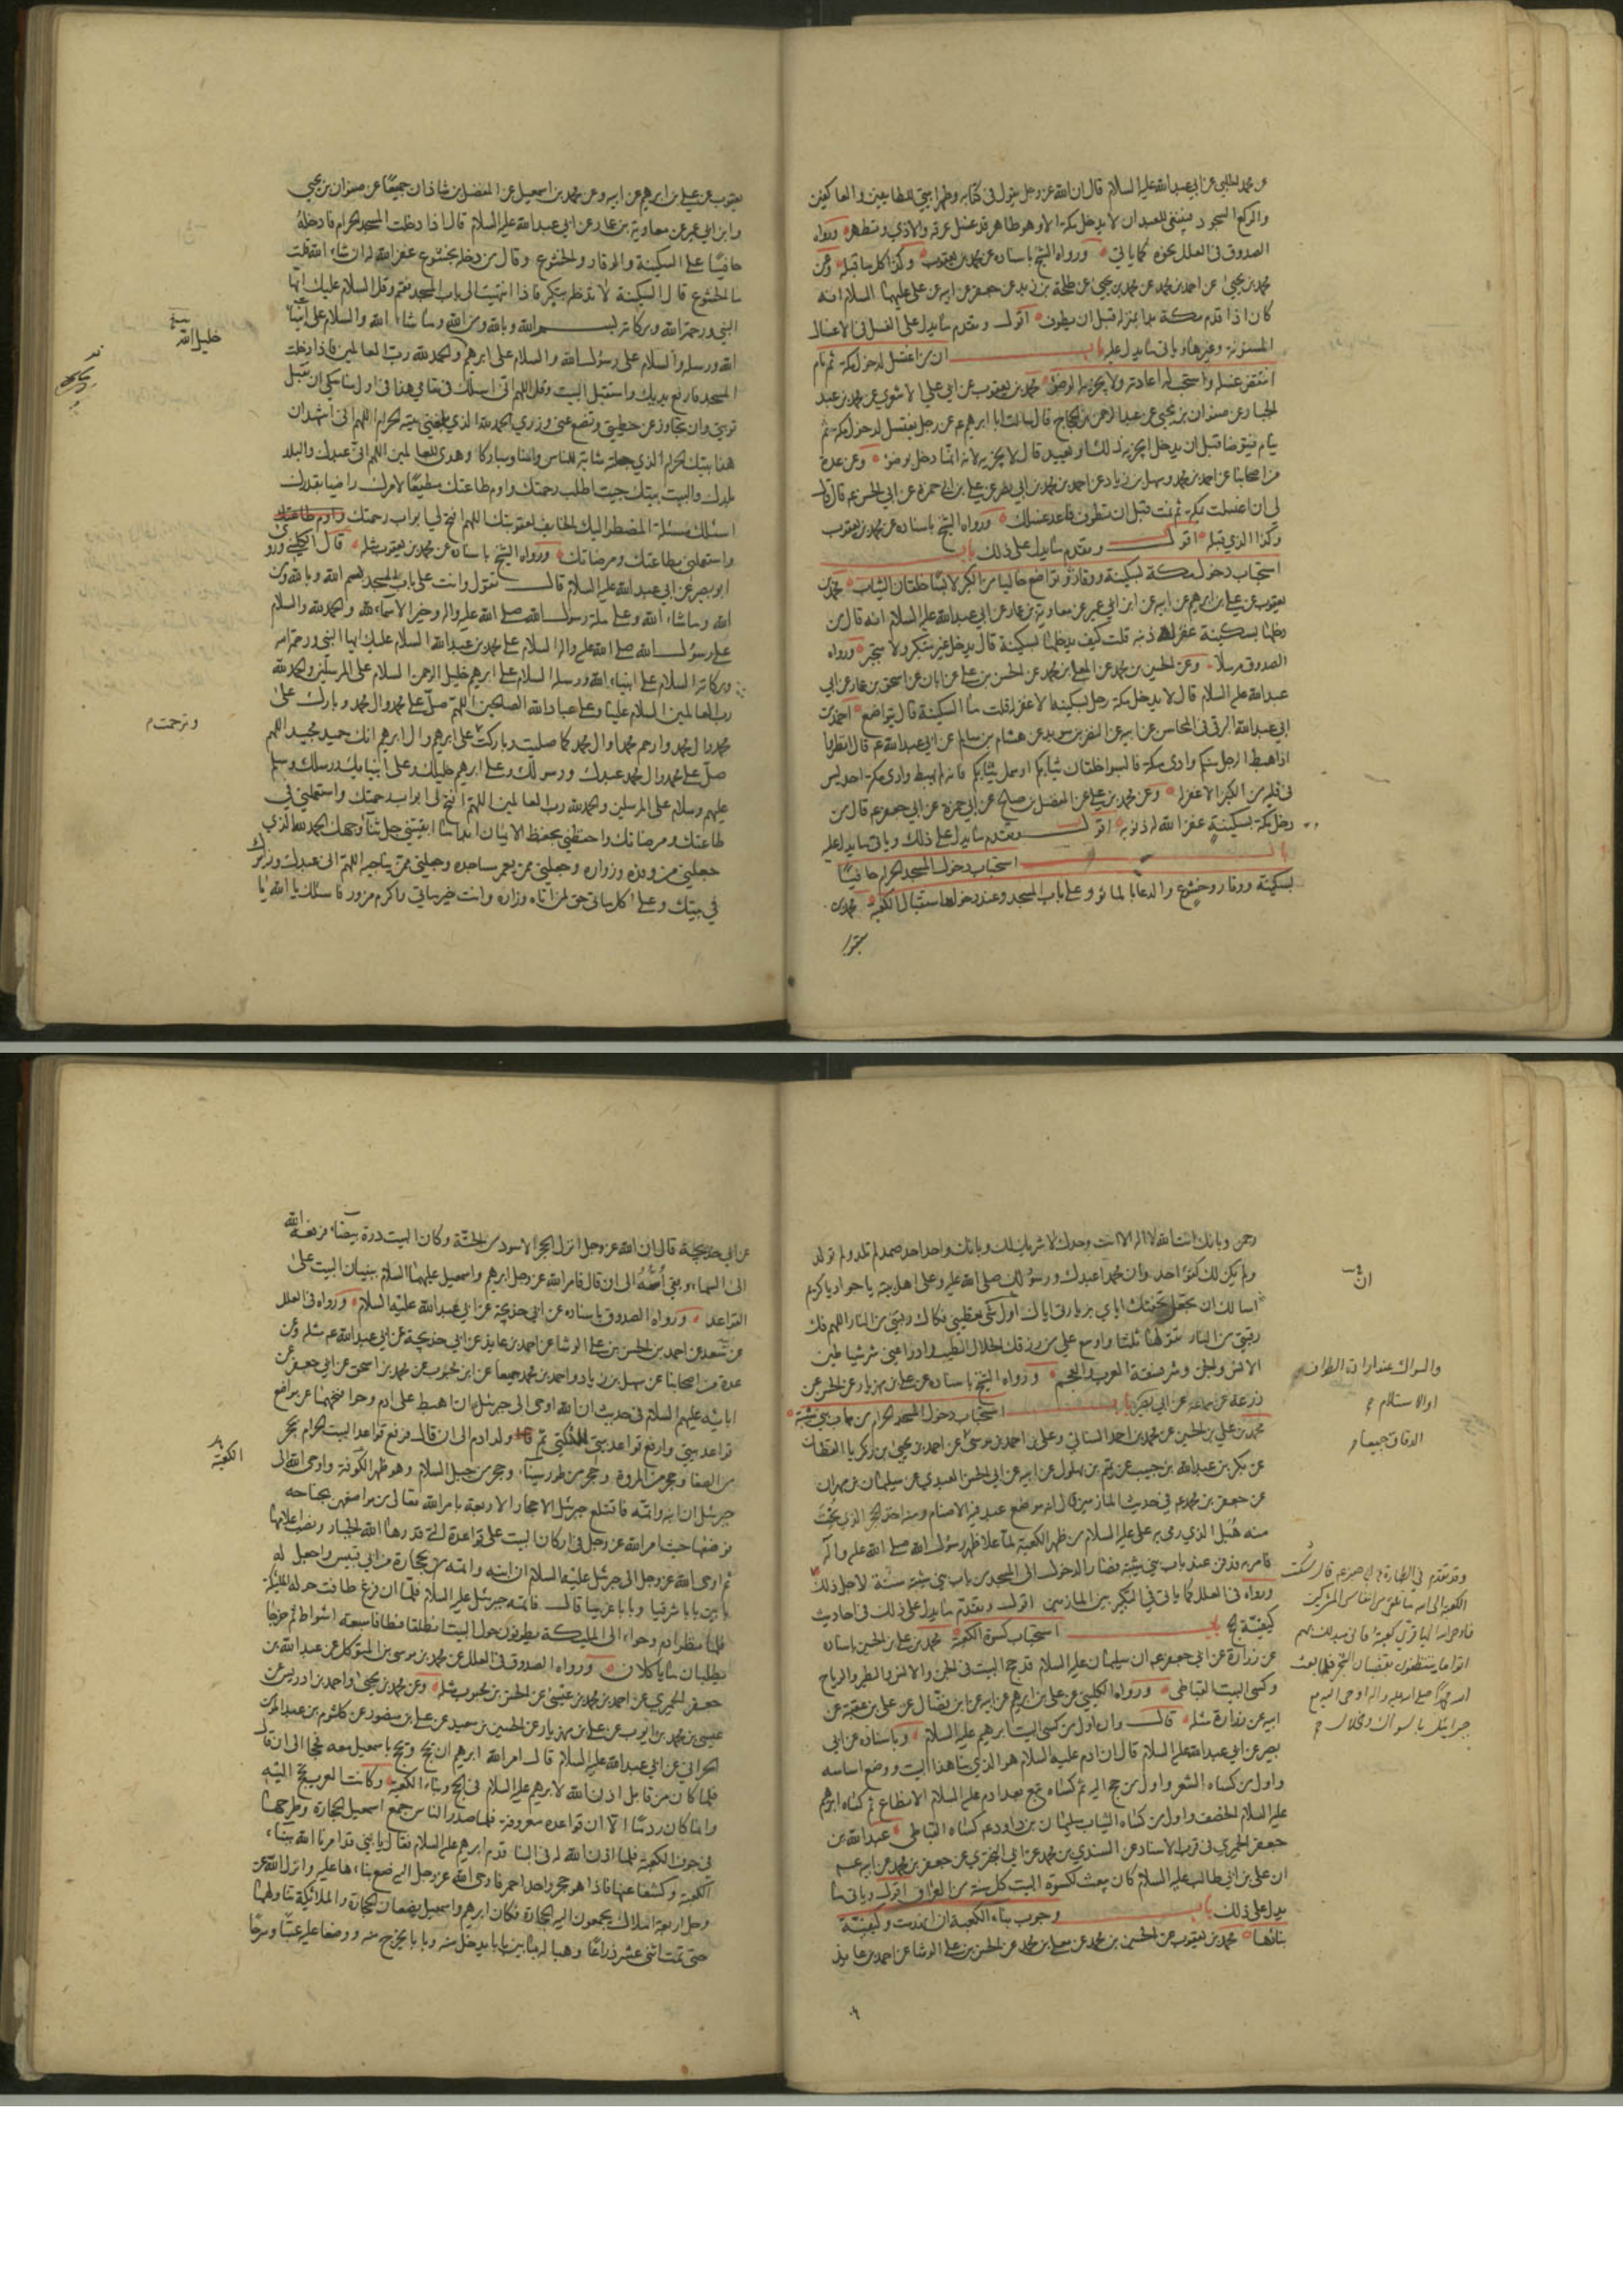 عن محمد الحلبي عن ابي عبدالله عليه السلام قال ان الله عزوجل يقول في كتابه وطهرا بيتي للطائفين والعاكفين
والركع السجود فينبغي للعبد ان لا يدخل مكة الا وهو طاهر قد غسل عرقه والاذي وتطهر ورواه
الصدوق في العلل نحوه كما ياتي ورواه الشيخ باسناده عن محمد بن يعقوب وكذا كل ما قبله وعن
محمد بن يحيى عن احمد بن محمد عن محمد بن يحيى عن طلحة بن زيد عن جعفر عن ابيه عن علي عليهما السلام انه
كان اذا قدم مكة بدا بمنزله قبل ان يطوف اقول وتقدم ما يدل على الغسل في الاغسال
المسنونة وغيرها وياتي ما يدل عليه باب ان من اغتسل لدخول مكة ثم نام
انتقض غسله واستحب له اعادته ولا يجزيه الوضوء محمد بن يعقوب عن ابي علي الاشعري عن محمد بن عبد
الجبار عن صفوان بن يحيى عن عبدالرحمن بن الحجاج قال سالت ابا ابراهيم ع عن رجل يغتسل لدخول مكة ثم
ينام فيتوضا قبل ان يدخل ايجزيه ذلك او يعيد قال لا يجزيه لانه انما دخل بوضوء وعن عدة
من اصحابنا عن احمد بن محمد وسهل بن زياد عن احمد بن محمد بن ابي نصر عن علي بن ابي حمزة عن ابي الحسن ع قال قال
لي ان اغتسلت بمكة ثم نمت قبل ان تطوف فاعد غسلك ورواه الشيخ باسناده عن محمد بن يعقوب
وكذا الذي قبله اقول وتقدم ما يدل على ذلك باب
استحباب دخول مكة بسكينة ووقار وتواضع خاليا من الكبر لابسا خلقان الثياب محمد بن
يعقوب عن علي بن ابرهيم عن ابيه عن ابن ابي عمير عن معاوية بن عمار عن ابي عبدالله عليه السلام انه قال من
دخلها بسكينة غفر له ذنبه قلت كيف يدخلها بسكينة قال يدخل غير متكبر ولا متجبر ورواه
الصدوق مرسلا وعن الحسين بن محمد عن المعلى بن محمد عن الحسن بن علي عن ابان عن اسحق بن عمار عن ابي
عبدالله عليه السلام قال لا يدخل مكة رجل بسكينة الا غفر له قلت ما السكينة قال يتواضع احمد بن
ابي عبدالله البرقي في المحاسن عن ابيه عن النضر بن سويد عن هشام بن سالم عن ابي عبدالله ع قال انظروا
اذا هبط الرجل منكم وادي مكة فالبسوا خلقان ثيابكم او سمل ثيابكم فانه لم يهبط وادي مكة احد ليس
في قلبه من الكبر الا غفر له وعن محمد بن علي عن المفضل بن صالح عن ابي حمزة عن ابي جعفر ع قال من
دخل مكة بسكينة غفر الله له ذنوبه اقول وتقدم ما يدل على ذلك وياتي ما يدل عليه
باب استحباب دخول المسجد الحرام حافيا
بسكينة ووقار وخشوع والدعا بالماثور وعلى باب المسجد وعند دخوله واستقبال الكعبة محمد بن
يعقوب عن علي بن ابرهيم عن ابيه وعن محمد بن اسمعيل عن الفضل بن شاذان جميعا عن صفوان بن يحيى
وابن ابي عمير عن معاوية بن عمار عن ابي عبدالله عليه السلام قال اذا دخلت المسجد الحرام فادخله
حافيا على السكينة والوقار والخشوع وقال من دخله بخشوع غفر الله له ان شاء الله قلت
ما الخشوع قال السكينة لا تدخل بتكبر فاذا انتهيت الى باب المسجد فقم وقل السلام عليك ايها
النبي ورحمة الله وبركاته بسم الله وبالله ومن الله وما شاء الله والسلام على انبياء
الله ورسله والسلام على رسول الله والسلام على ابرهيم والحمد لله رب العالمين فاذا دخلت
المسجد فارفع يديك واستقبل البيت وقل اللهم اني اسالك في مقامي هذا في اول مناسكي ان تقبل
توبتي وان تجاوز عن خطيئتي وتضع عني وزري الحمد لله الذي بلغني بيته الحرام اللهم اني اشهد ان
هذا بيتك الحرام الذي جعلته مثابة للناس وامنا ومباركا وهدى للعالمين اللهم اني عبدك والبلد
بلدك والبيت بيتك جئت اطلب رحمتك واوم طاعتك مطيعا لامرك راضيا بقدرك
اسئلك مسئلة المضطر اليك الخايف لعقوبتك اللهم افتح لي ابواب رحمتك
واستعملني بطاعتك ومرضاتك ورواه الشيخ باسناده عن محمد بن يعقوب مثله قال الكليني وروى
ابو بصير عن ابي عبدالله عليه السلام قال تقول وانت على باب المسجد بسم الله وبالله ومن
الله وما شاء الله وعلى ملة رسول الله صلى الله عليه واله وخير الاسماء لله والحمد لله والسلام
على رسول الله صلى الله عليه واله السلام على محمد بن عبدالله السلام عليك ايها النبي ورحمة الله
وبركاته السلام على انبياء الله ورسله السلام على ابرهيم خليل الرحمن السلام على المرسلين والحمد لله
رب العالمين السلام علينا وعلى عباد الله الصالحين اللهم صل على محمد وال محمد وبارك على
محمد وال محمد وارحم محمدا وال محمد كما صليت وباركت على ابرهيم وال ابرهيم انك حميد مجيد اللهم
صل على محمد وال محمد عبدك ورسولك وعلى ابرهيم خليلك وعلى انبيائك ورسلك وسلم
عليهم وسلام على المرسلين والحمد لله رب العالمين اللهم افتح لي ابواب رحمتك واستعملني في
طاعتك ومرضاتك واحفظني بحفظ الايمان ابدا ما ابقيتني جل ثناء وجهك الحمد لله الذي
جعلني من وفده وزواره وجعلني ممن يعمر مساجده وجعلني ممن يناجيه اللهم اني عبدك وزائرك
في بيتك وعلى كل ماتي حق لمن اتاه وزاره وانت خير ماتي واكرم مزور فاسئلك يا الله يا
خليل الله
وترحمت م
رحمن وبانك انت الله لا اله الا انت وحدك لا شريك لك وبانك واحد احد صمد لم تلد ولم تولد
ولم يكن لك كفوا احد وان محمدا عبدك ورسولك صلى الله عليه وعلى اهل بيته يا جواد يا كريم
اسالك ان تجعل تحفتك اياي بزيارتي اياك اول شيء تعطيني فكاك رقبتي من النار اللهم فك
رقبتي من النار تقولها ثلثا واوسع علي من رزقك الحلال الطيب وادرا عني شر شياطين
الانس والجن وشر فسقة العرب والعجم ورواه الشيخ باسناده عن علي بن مهزيار عن الحسن عن
زرعة عن سماعة عن ابي بصير باب استحباب دخول المسجد الحرام من باب بني شيبة
محمد بن علي بن الحسين عن محمد بن احمد السناني وعلي بن احمد بن موسى عن احمد بن يحيى بن زكريا القطان
عن بكر بن عبدالله بن حبيب عن تميم بن بهلول عن ابيه عن ابي الحسن العبدي عن سليمان بن مهران
عن جعفر بن محمد ع في حديث المازمين قال انه موضع عبد فيه الاصنام ومنه اخذ الحجر الذي نحت
منه هبل الذي رمى به علي عليه السلام من ظهر الكعبة لما علا ظهر رسول الله صلى الله عليه وآله
فامر به فدفن عند باب بني شيبة فصار الدخول الى المسجد من باب بني شيبة سنة لاجل ذلك
ورواه في العلل كما ياتي في التكبير بين المازمين اقول وتقدم ما يدل على ذلك في احاديث
كيفية الحج باب استحباب كسوة الكعبة محمد بن علي بن الحسين باسناده
عن زرارة عن ابي جعفر ع ان سليمان عليه السلام قد حج البيت في الجن والانس والطير والرياح
وكسى البيت القباطي ورواه الكليني عن علي بن ابرهيم عن ابيه عن ابن فضال عن علي بن عقبة عن
ابيه عن زرارة مثله قال وان اول من كسى البيت ابرهيم عليه السلام وباسناده عن ابي
بصير عن ابي عبدالله عليه السلام قال ان ادم عليه السلام هو الذي بنا هذا البيت ووضع اساسه
واول من كساه الشعر واول من حج اليه ثم كساه تبع بعد ادم عليه السلام الانطاع ثم كساه ابرهيم
عليه السلام الخصف واول من كساه الثياب سليمان بن داود ع كساه القباطي عبدالله بن
جعفر الحميري في قرب الاسناد عن السندي بن محمد عن ابي البختري عن جعفر بن محمد عن ابيه ع
ان علي بن ابي طالب عليه السلام كان يبعث لكسوة البيت كل سنة من العراق اقول وياتي ما
يدل على ذلك باب وجوب بناء الكعبة ان انهدمت وكيفية
بنائها محمد بن يعقوب عن الحسين بن محمد عن معلى بن محمد عن الحسن بن علي الوشا عن احمد بن عائذ
والسواك عند ارادة الطواف
او الاستلام
الدقاق جميعا
وقد تقدم في الطهارة عن ابي جعفر ع قال شكت
الكعبة الى الله ما تلقى من انفاس المشركين
فاوحى الله اليها قري كعبة فاني مبدلك بهم
اقواما يتنظفون بقضبان الشجر فلما بعث
الله محمدا صلى الله عليه واله اوحى اليه مع
جبرائيل بالسواك والخلال
عن ابي خديجة قال ان الله عزوجل انزل الحجر الاسود من الجنة وكان البيت درة بيضاء فرفعه الله
الى السماء وبقي اسه الى ان قال فامر الله عزوجل ابرهيم واسمعيل عليهما السلام ببنيان البيت على
القواعد ورواه الصدوق باسناده عن ابي خديجة عن ابي عبدالله عليه السلام ورواه في العلل
عن سعد عن احمد بن الحسن بن علي الوشا عن احمد بن عايذ عن ابي خديجة عن ابي عبدالله ع مثله وعن
عدة من اصحابنا عن سهل بن زياد واحمد بن محمد جميعا عن ابن محبوب عن محمد بن اسحق عن ابي جعفر عن
ابائه عليهم السلام في حديث ان الله اوحى الى جبرئيل ان اهبط على ادم وحوا فنحهما عن مواضع
قواعد بيتي وارفع قواعد بيتي لملئكتي ثم ولد ادم الى ان قال فرفع قواعد البيت الحرام بحجر
من الصفا وحجر من المروة وحجر من طور سيناء وحجر من جبل السلام وهو ظهر الكوفة واوحى الله الى
جبرئيل ان ابنه واتمه فاقتلع جبرئيل الاحجار الاربعة بامر الله تعالى من مواضعهن بجناحه
فوضعها حيث امر الله عزوجل في اركان البيت على قواعدة التي قدرها الله الجبار ونصب اعلامها
ثم اوحى الله عزوجل الى جبرئيل عليه السلام ان ابنه واتمه من حجارة من ابي قبيس واجعل له
بابين بابا شرقيا وبابا غربيا قال فاتمه جبرئيل عليه السلام فلما ان فرغ طافت حوله الملئكة
فلما نظر ادم وحواء الى المليكة يطوفون حول البيت انطلقا فطافا سبعة اشواط ثم خرجا
يطلبان ما ياكلان ورواه الصدوق في العلل عن محمد بن موسى بن المتوكل عن عبدالله بن
جعفر الحميري عن احمد بن محمد بن عيسى عن الحسن بن محبوب مثله وعن محمد بن يحيى واحمد بن ادريس عن
عيسى بن محمد بن ايوب عن علي بن مهزيار عن الحسين بن سعيد عن علي بن منصور عن كلثوم بن عبدالمؤمن
الحراني عن ابي عبدالله عليه السلام قال امر الله ابرهيم ان يحج ويحج باسمعيل معه فحجا الى ان قال
فلما كان من قابل اذن الله لابرهيم عليه السلام في الحج وبناء الكعبة وكانت العرب تحج اليه
وانما كان ردما الا ان قواعده معروفة فلما صدر الناس جمع اسمعيل الحجارة وطرحها
في جوف الكعبة فلما اذن الله له في البنا قدم ابرهيم عليه السلام فقال يا بني قد امرنا الله ببناء
الكعبة وكشفا عنها فاذا هو حجر واحد احمر فاوحى الله عزوجل اليه ضع بناءها عليه وانزل الله عز
وجل اربعة املاك يجمعون اليه الحجارة فكان ابرهيم واسمعيل يضعان الحجارة والملائكة تناولهما
حتى تمت اثنى عشر ذراعا وهيا له بابين بابا يدخل منه وبابا يخرج منه ووضعا عليه عتبا وسرحا
الكعبة